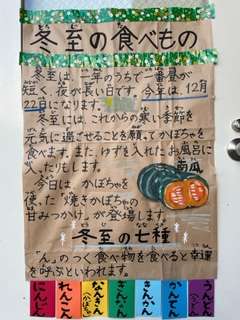 冬至の食べもの
冬至は、一年のうちで一番昼が
短く、夜が長い日です。今年は、12月
22日になります。
冬至には、これからの寒い季節を
元気に過ごせることを願ってかぼちゃを
食べます。また、ゆずを入れたお風呂に
入ったりもします。
南瓜
今日は、かぼちゃを
使った"焼きかぼちゃの
甘みつかけ"が登場します。
冬至の七種
「ん」のつく食べ物を食べると幸運
を呼ぶといわれます。
にんじん
れんこん
なんきん
(かぼちゃ)
ぎんなん
きんかん
かんてん
うんどん
(うどん)